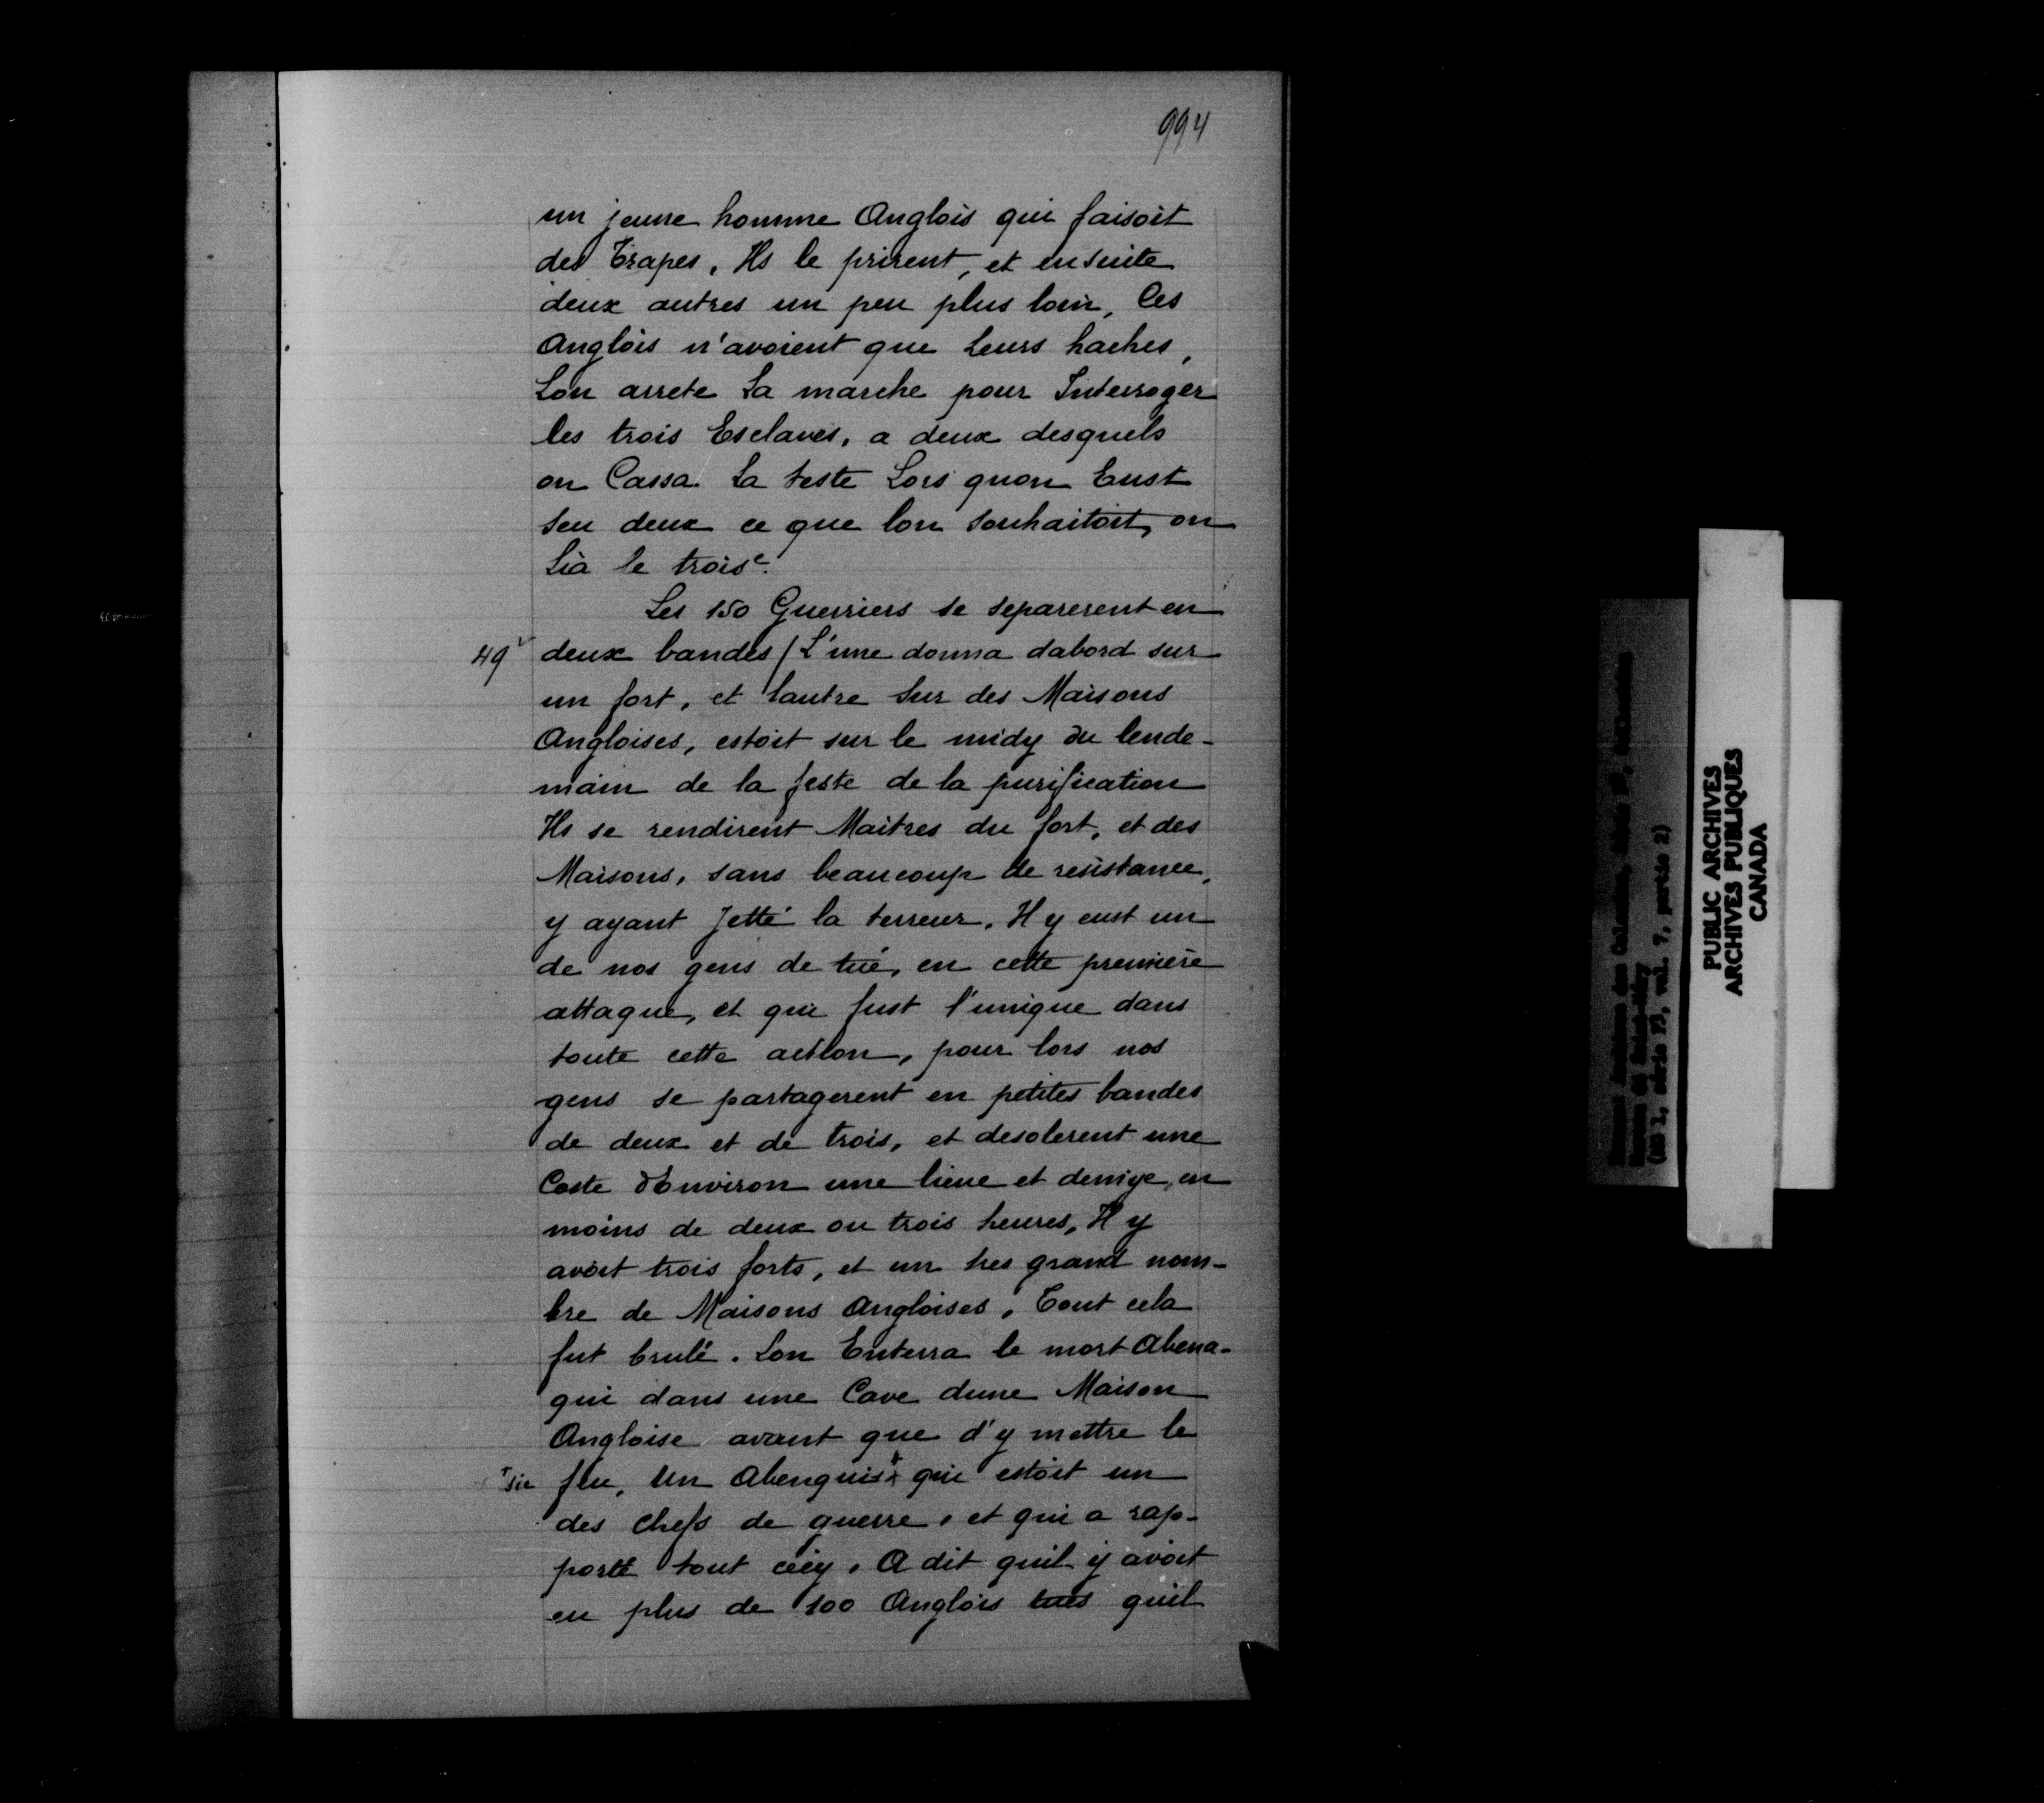 994
un jeune homme Anglois qui faisoit
des Trapes, Ils le prirent, et ensuite
deux autres un peu plus loin, Ces
Anglois n'avoient que leurs haches,
Lon arrete La marche pour Interroger
les trois Esclaves, a deux desquels
on Cassa La teste Lors quon Eust
seu deux ce que lon souhaitoit, on
Lia le troise.
Les 150 Guerriers se separerent en
49v deux bandes / L'une donna dabord sur
un fort, et lautre sur des Maisons
Angloises, estoit sur le midy du lende-
main de la feste de la purification
Ils se rendirent Maitres du fort, et des
Maisons, sans beaucoup de resistance,
y ayant Jetté la terreur. Il y eust un
de nos gens de tué, en cette premiere
attaque, et qui fust l'unique dans
toute cette action, pour lors nos
gens se partagerent en petites bandes
de deux et de trois, et desolerent une
Coste dEnviron une lieue et demye, en
moins de deux ou trois heures, Il y
avoit trois forts, et un tres grand nom-
bre de Maisons Angloises, Tout cela
fut brulé. Lon Enterra le mort Abena-
qui dans une Cave dune Maison
Angloise avant que d'y mettre le
sic feu, Un Abenquis qui estoit un
des chefs de guerre, et qui a rap-
porté tout cecy, A dit quil y avoit
eu plus de 100 Anglois tues quil
PUBLIC ARCHIVES
ARCHIVES PUBLIQUES
CANADA
série F3, vol. 7, partie 2)